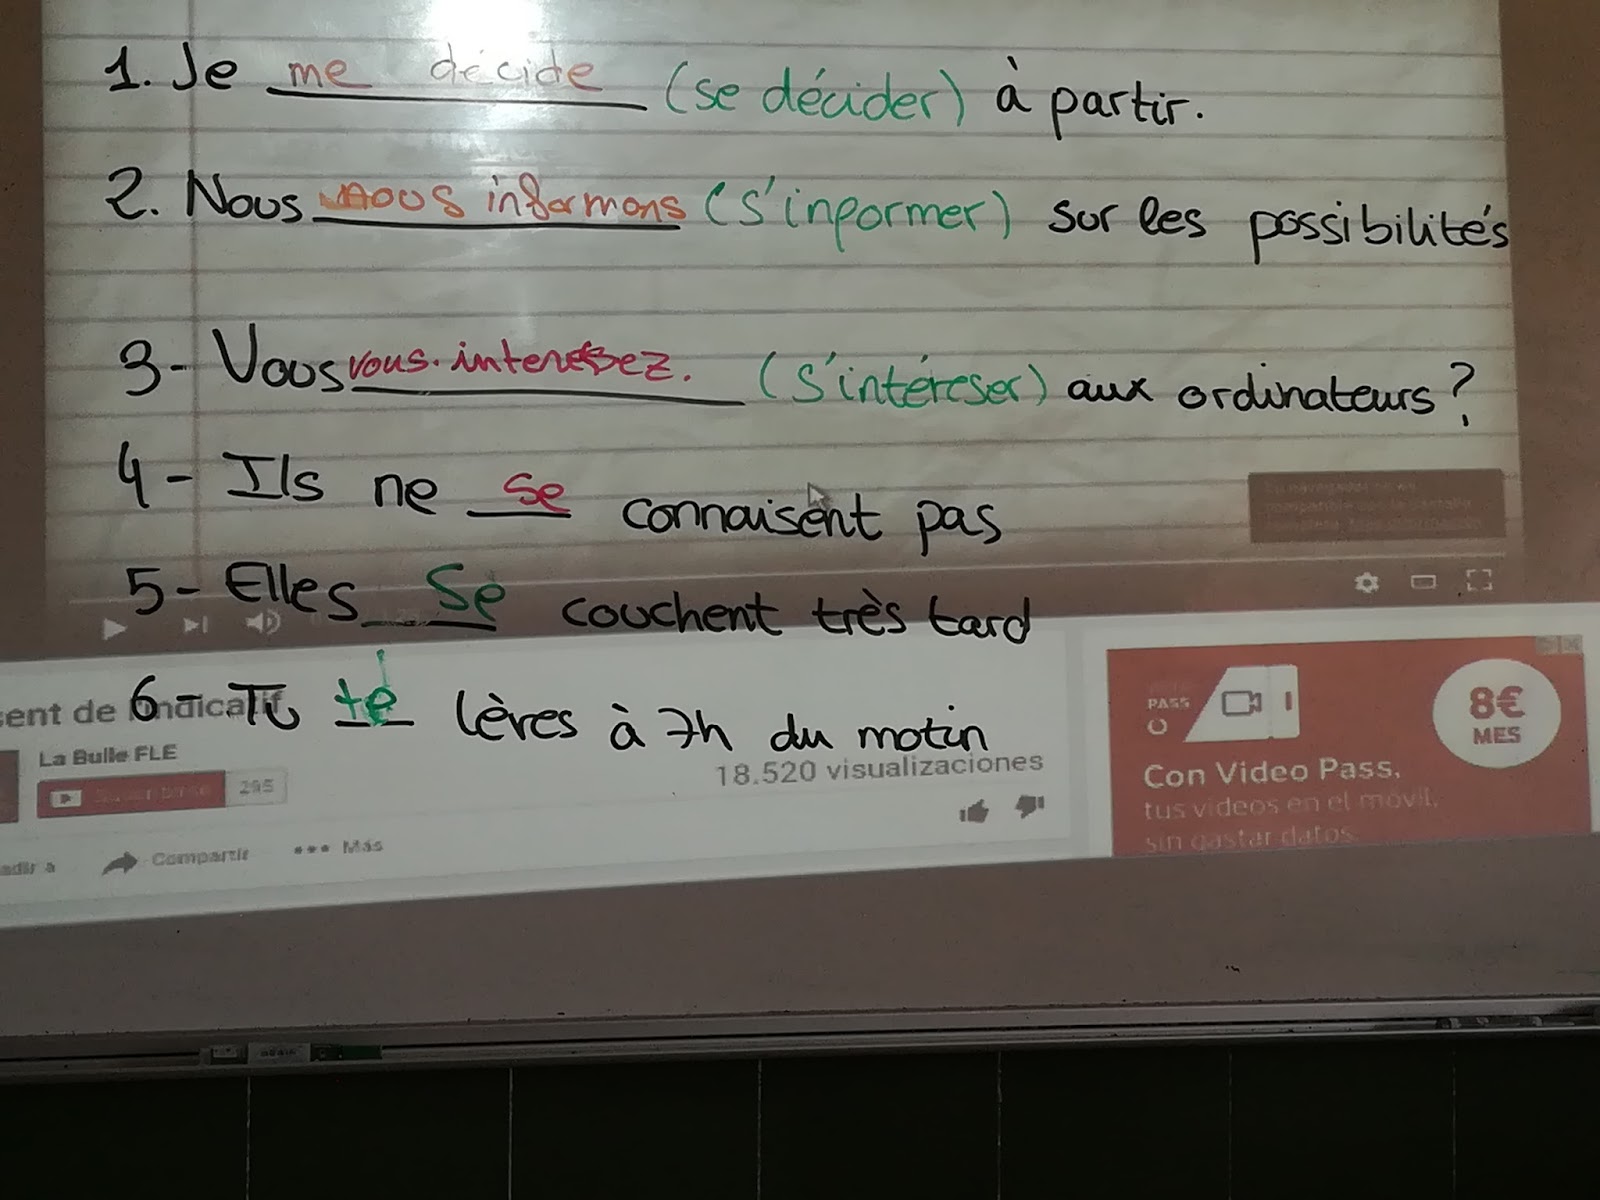 1. Je me décide (se décider) à partir.
2. Nous nous informons (s'inpormer) sur les possibilités
3- Vous vous. interessez. (s'intéreser) aux ordinateurs?
4- Ils ne se connaisent pas
5- Elles se couchent très tard
6- Tu te lères à 7h du motin
sent de l'indicatif
La Bulle FLE
295
18.520 visualizaciones
adir a Compartir Más
PASS
8€
MES
Con Video Pass,
tus videos en el móvil,
sin gastar datos.